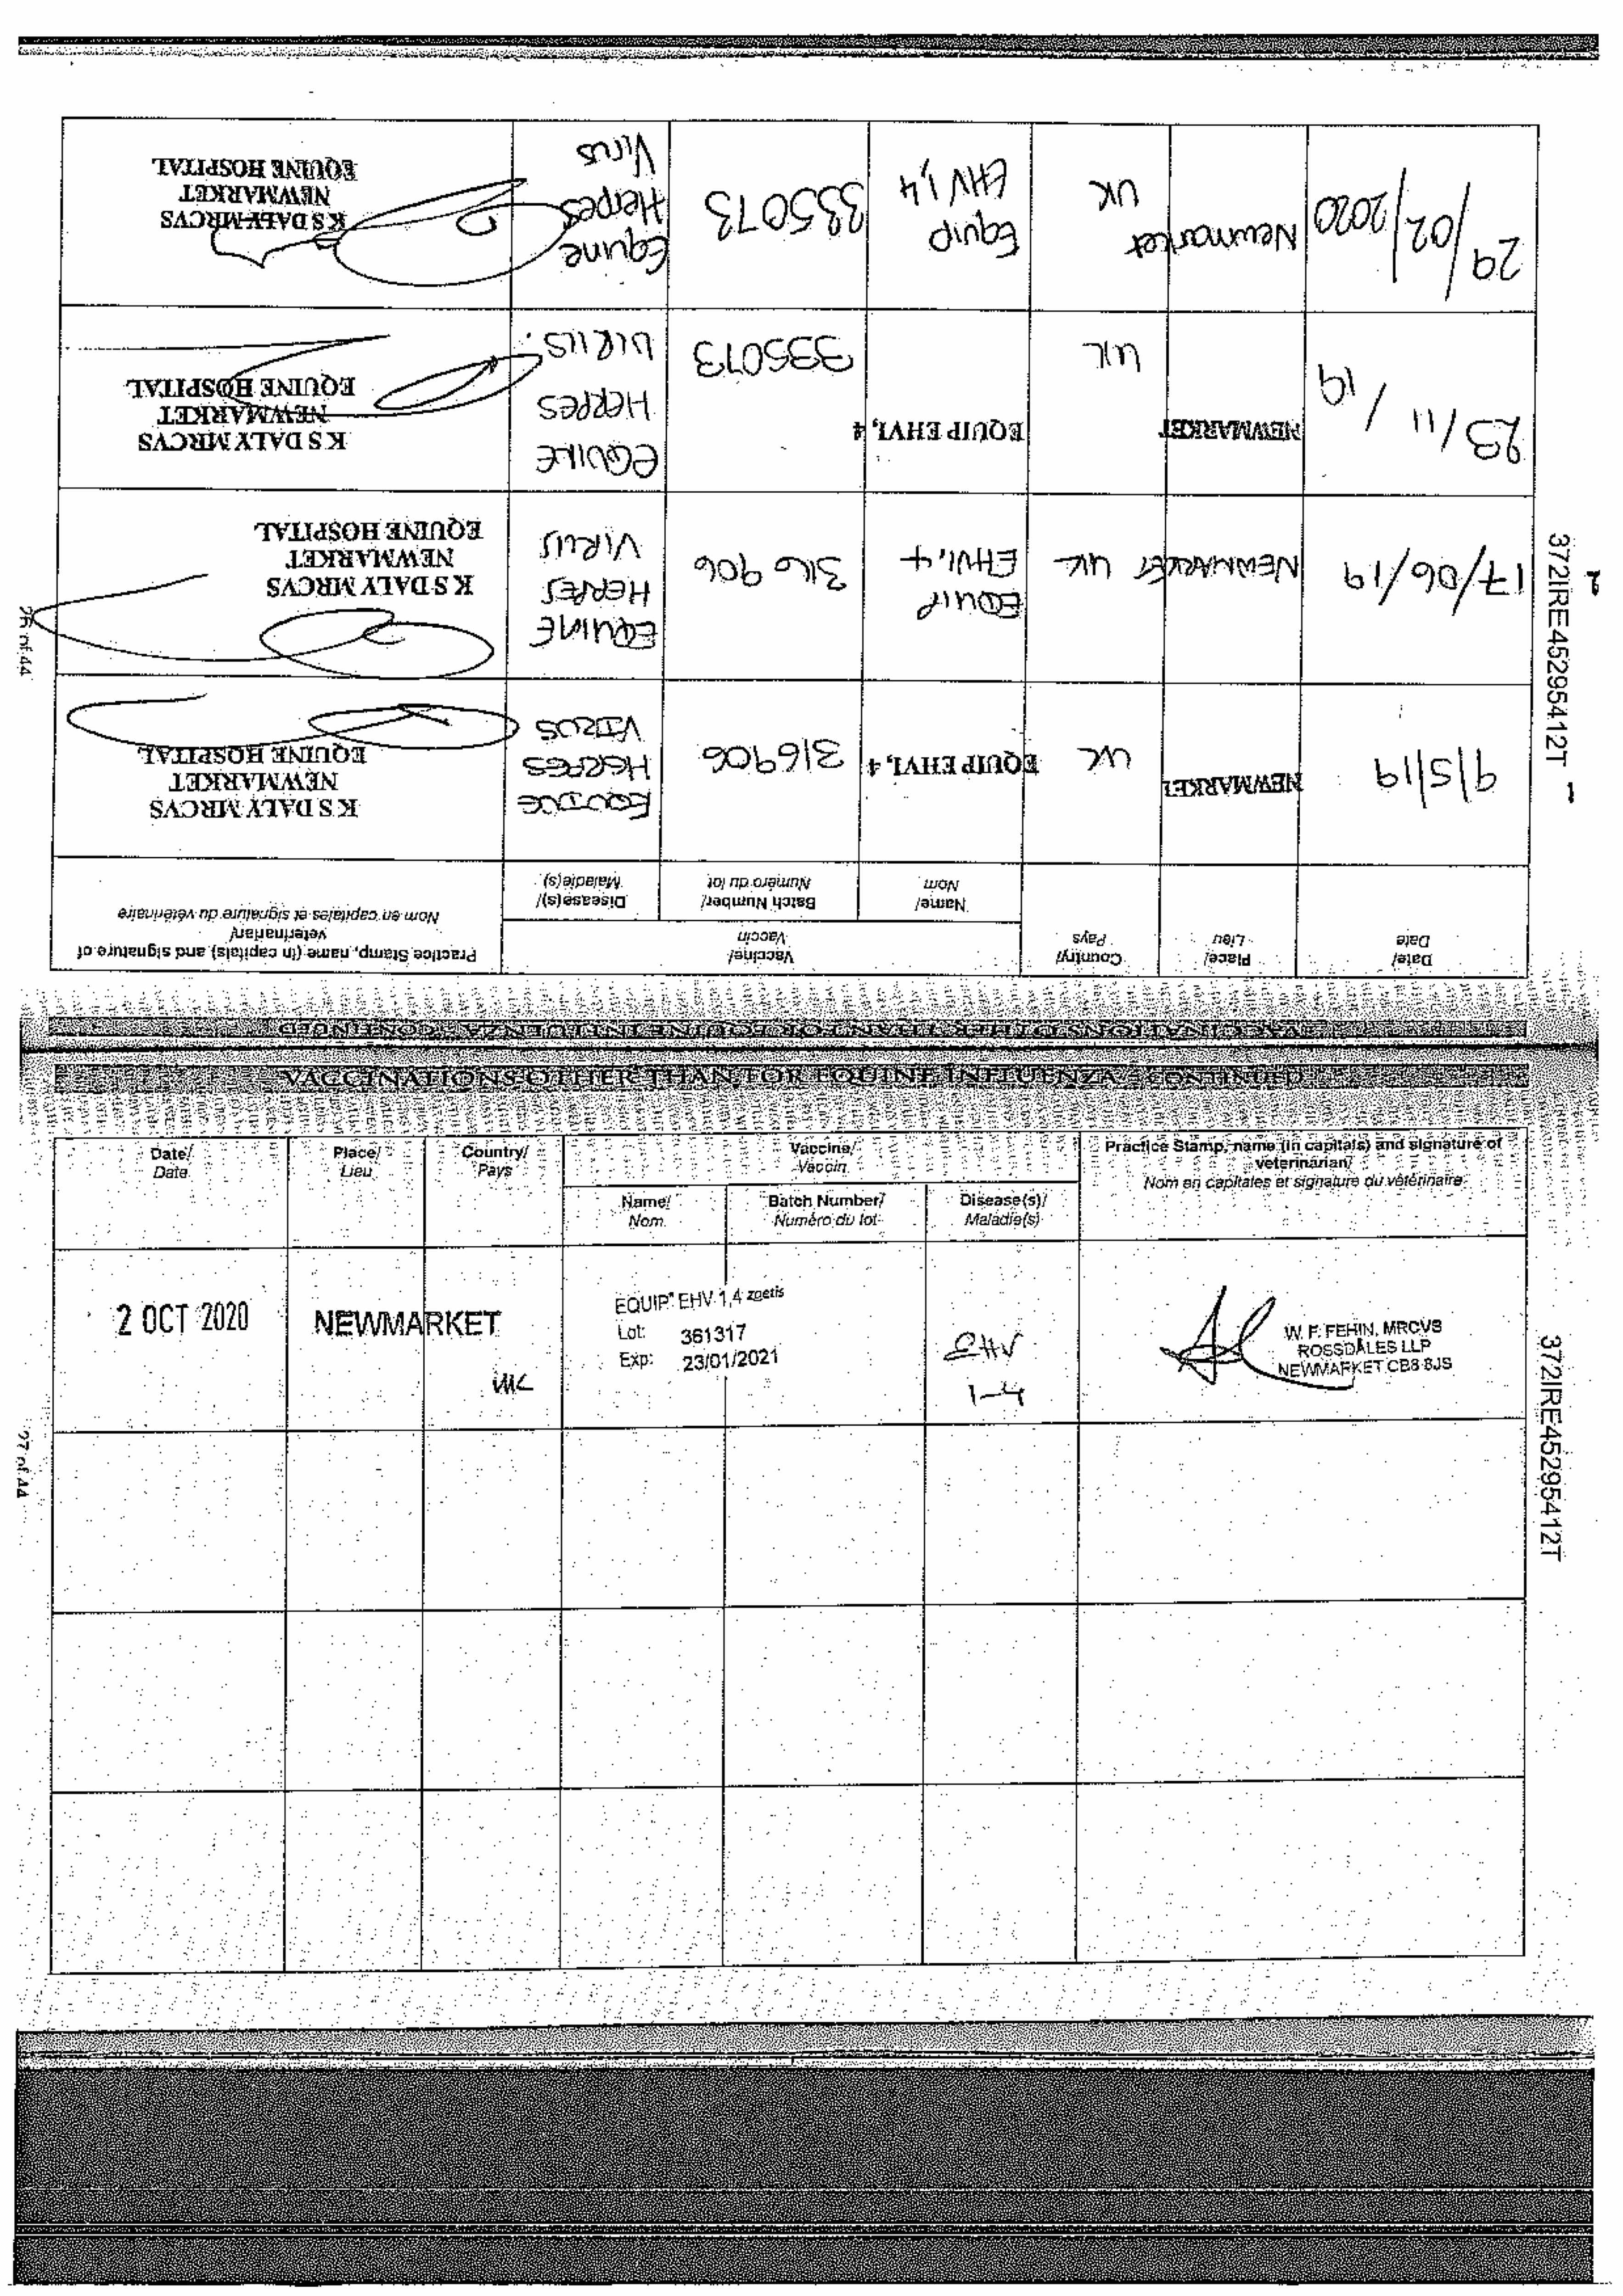 VACCINATIONS OTHER THAN FOR EQUINE INFLUENZA - CONTINUED
Date/
Date
Place/
Lieu
Country/
Pays
Vaccine/
Vaccin
Name/
Nom
Batch Number/
Numéro du lot
Disease(s)/
Maladie(s)
Practice Stamp, name (in capitals) and signature of
veterinarian/
Nom en capitales et signature du vétérinaire
9/5/19
NEWMARKET
UK
EQUIP EHV1,4
316906
EQUINE
HERPES
VIRUS
K S DALY MRCVS
NEWMARKET
EQUINE HOSPITAL
17/06/19
NEWMARKET
UK
EQUIP
EHV1,4
316906
EQUINE
HERPES
VIRUS
K S DALY MRCVS
NEWMARKET
EQUINE HOSPITAL
23/11/19
NEWMARKET
UK
EQUIP EHV1,4
335073
EQUINE
HERPES
VIRUS.
K S DALY MRCVS
NEWMARKET
EQUINE HOSPITAL
29/02/2020
Newmarket
UK
Equip
EHV 1,4
335073
Equine
Herpes
Virus
K S DALY MRCVS
NEWMARKET
EQUINE HOSPITAL
26 of 44
372IRE45295412T
1
2
VACCINATIONS OTHER THAN FOR EQUINE INFLUENZA - CONTINUED
Date/
Date
Place/
Lieu
Country/
Pays
Vaccine/
Vaccin
Name/
Nom
Batch Number/
Numéro du lot
Disease(s)/
Maladie(s)
Practice Stamp, name (in capitals) and signature of
veterinarian/
Nom en capitales et signature du vétérinaire
2 OCT 2020
NEWMARKET
UK
EQUIP® EHV 1,4 zoetis
Lot: 361317
Exp: 23/01/2021
EHV
1-4
W. F. FEHIN, MRCVS
ROSSDALES LLP
NEWMARKET CB8 8JS
27 of 44
372IRE45295412T